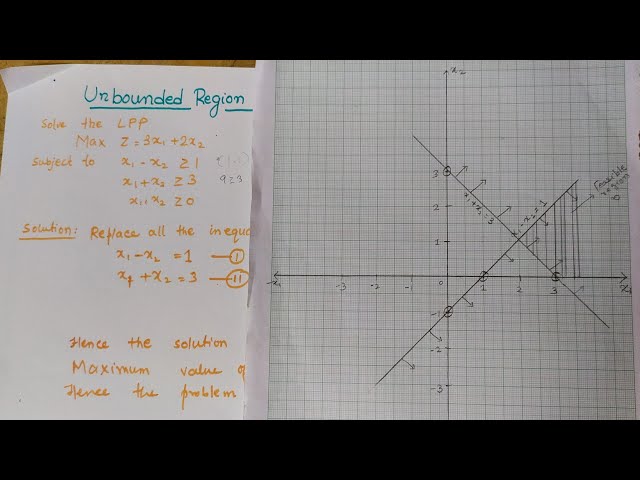 Unbounded Region
Solve the LPP
Max Z = 3x₁ + 2x₂
Subject to x₁ - x₂ ≥ 1
x₁ + x₂ ≥ 3
x₁, x₂ ≥ 0
Solution: Replace all the inequa
x₁ - x₂ = 1 — I
x₁ + x₂ = 3 — II
Hence the solution
Maximum value of
Hence the problem
x₂
3
2
1
x₁+x₂=3
x₁-x₂=1
Feasible
region
-x₁ -3 -2 -1 0 1 2 3 4 x₁
-1
-2
-3